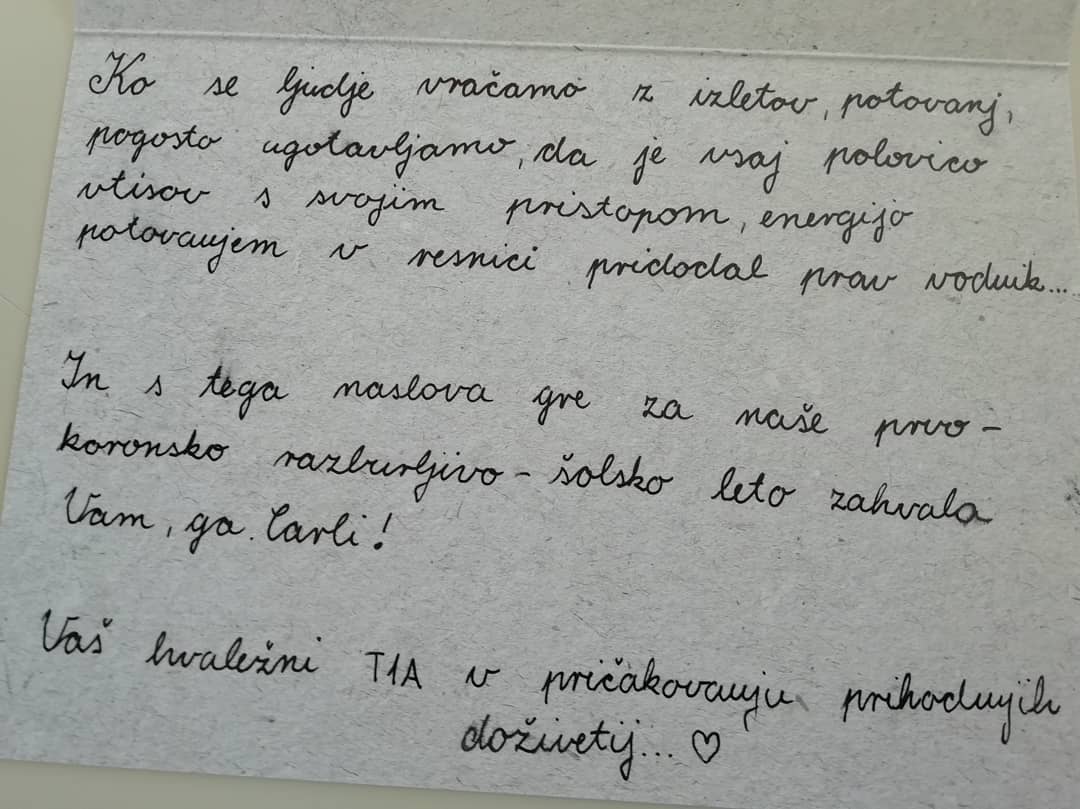 Ko se ljudje vračamo z izletov, potovanj,
pogosto ugotavljamo, da je vsaj polovico
vtisov s svojim pristopom, energijo
potovanjem v resnici pridodal prav vodnik...
In s tega naslova gre za naše prvo -
koronsko razburljivo - šolsko leto zahvala
Vam, ga. Carli!
Vaš hvaležni T1A v pričakovanju prihodnjih
doživetij... ♡